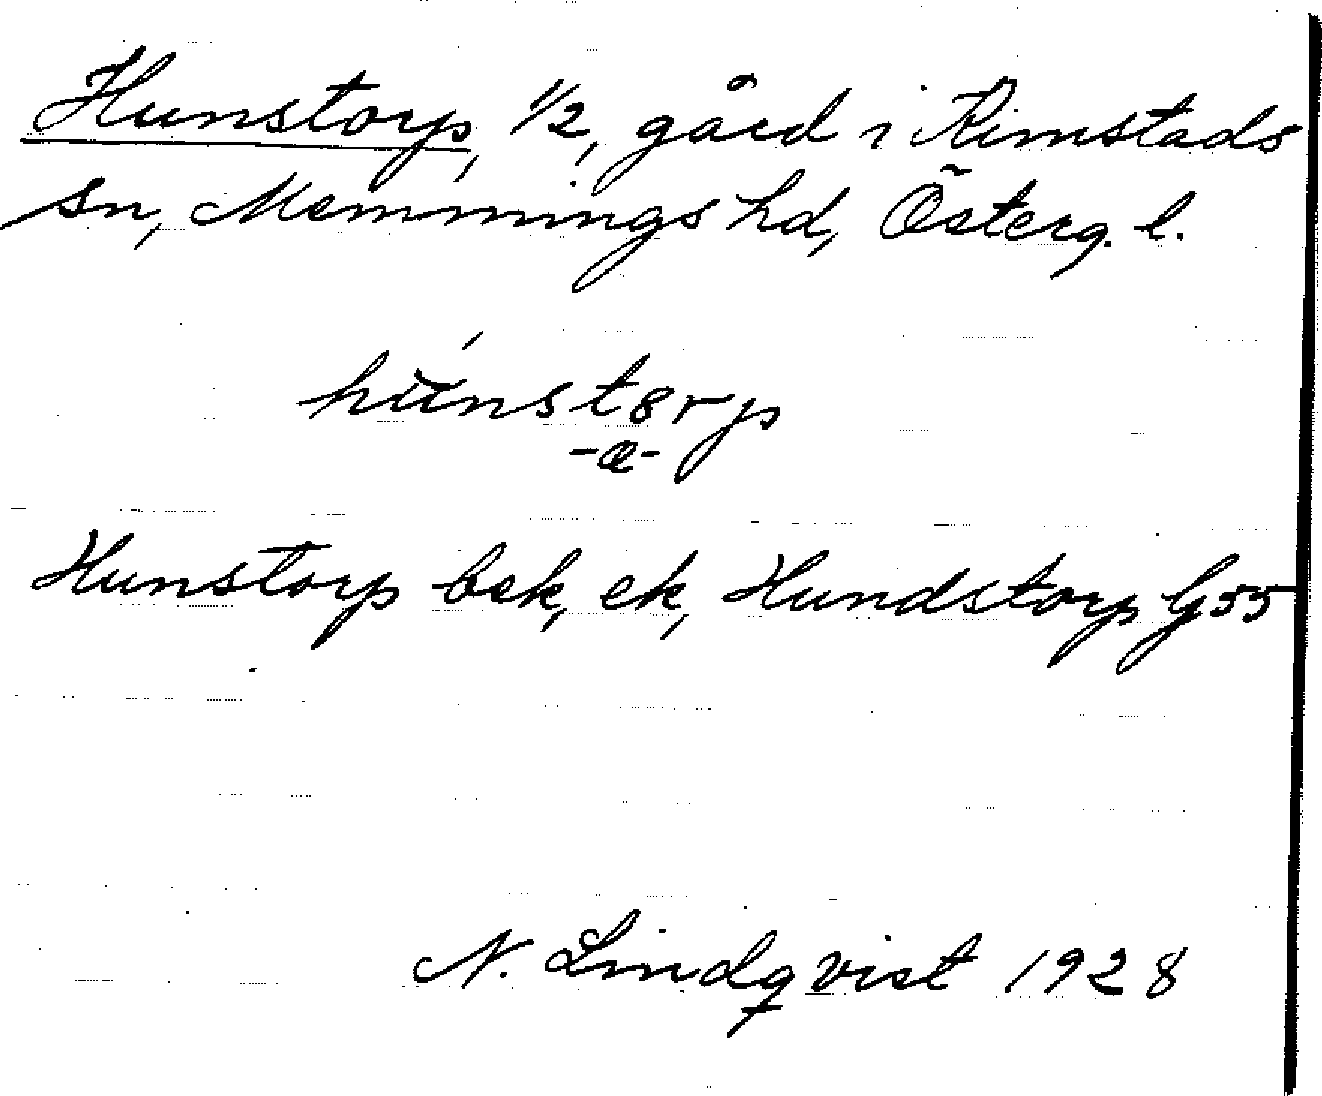 Hunstorp, 1/2, gård i Rimstads
sn, Memmings hd, Österg. l.
hŭ́nstɞrp
-a-
Hunstorp bek, ek, Hundstorp G55
N. Lindqvist 1928